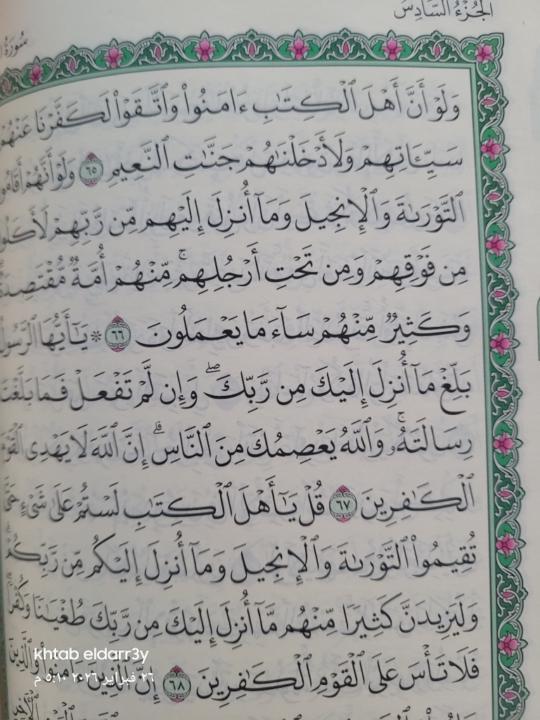 الجُزْءُ السَّادِسُ
سُورَةُ
وَلَوْ أَنَّ أَهْلَ ٱلْكِتَٰبِ ءَامَنُوا۟ وَٱتَّقَوْا۟ لَكَفَّرْنَا عَنْهُمْ
سَيِّـَٔاتِهِمْ وَلَأَدْخَلْنَٰهُمْ جَنَّٰتِ ٱلنَّعِيمِ ٦٥ وَلَوْ أَنَّهُمْ أَقَامُوا۟
ٱلتَّوْرَىٰةَ وَٱلْإِنجِيلَ وَمَآ أُنزِلَ إِلَيْهِم مِّن رَّبِّهِمْ لَأَكَلُوا۟
مِن فَوْقِهِمْ وَمِن تَحْتِ أَرْجُلِهِم ۚ مِّنْهُمْ أُمَّةٌ مُّقْتَصِدَةٌ
وَكَثِيرٌ مِّنْهُمْ سَآءَ مَا يَعْمَلُونَ ٦٦ ۞ يَٰٓأَيُّهَا ٱلرَّسُولُ
بَلِّغْ مَآ أُنزِلَ إِلَيْكَ مِن رَّبِّكَ ۖ وَإِن لَّمْ تَفْعَلْ فَمَا بَلَّغْتَ
رِسَالَتَهُۥ ۚ وَٱللَّهُ يَعْصِمُكَ مِنَ ٱلنَّاسِ ۗ إِنَّ ٱللَّهَ لَا يَهْدِى ٱلْقَوْمَ
ٱلْكَٰفِرِينَ ٦٧ قُلْ يَٰٓأَهْلَ ٱلْكِتَٰبِ لَسْتُمْ عَلَىٰ شَىْءٍ حَتَّىٰ
تُقِيمُوا۟ ٱلتَّوْرَىٰةَ وَٱلْإِنجِيلَ وَمَآ أُنزِلَ إِلَيْكُم مِّن رَّبِّكُمْ ۗ
وَلَيَزِيدَنَّ كَثِيرًا مِّنْهُم مَّآ أُنزِلَ إِلَيْكَ مِن رَّبِّكَ طُغْيَٰنًا وَكُفْرًا ۖ
فَلَا تَأْسَ عَلَى ٱلْقَوْمِ ٱلْكَٰفِرِينَ ٦٨ إِنَّ ٱلَّذِينَ ءَامَنُوا۟ وَٱلَّذِينَ
khtab eldarr3y
٢٦ فبراير ٢٠٢٦ ٥:١٠ م